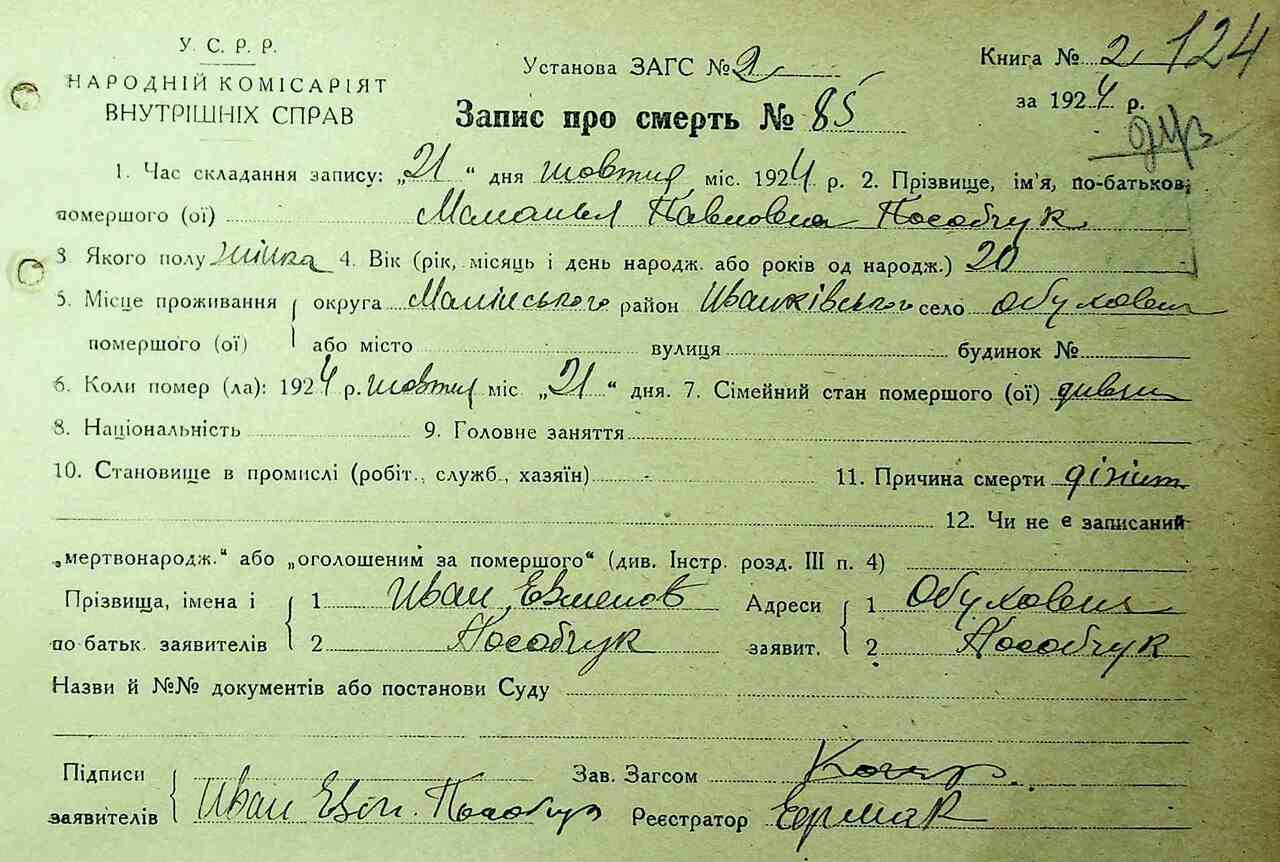 У. С. Р. Р.
НАРОДНІЙ КОМІСАРІЯТ
ВНУТРІШНІХ СПРАВ
Установа ЗАГС № 2
Книга № 2 124
за 1924 р.
Запис про смерть № 85
1. Час складання запису: „21“ дня жовтня міс. 1924 р. 2. Прізвище, ім'я, по-батькові
помершого (ої) Павловна Пособчук
3. Якого полу жінка 4. Вік (рік, місяць і день народж. або років од народж.) 20
5. Місце проживання округа Малинського район Иванківського село Обуховичі
помершого (ої) або місто вулиця будинок №
6. Коли помер (ла): 1924 р. жовтня міс „21“ дня. 7. Сімейний стан помершого (ої)
8. Національність 9. Головне заняття
10. Становище в промислі (робіт., служб., хазяїн) 11. Причина смерти
12. Чи не є записаний
„мертвонародж.“ або „оголошеним за помершого“ (див. Інстр. розд. III п. 4)
Прізвища, імена і 1 Иван Адреси 1
по батьк. заявителів 2 Пособчук заявит. 2 Пособчук
Назви й №№ документів або постанови Суду
Підписи Зав. Загсом
заявителів Иван Реєстратор Ермак